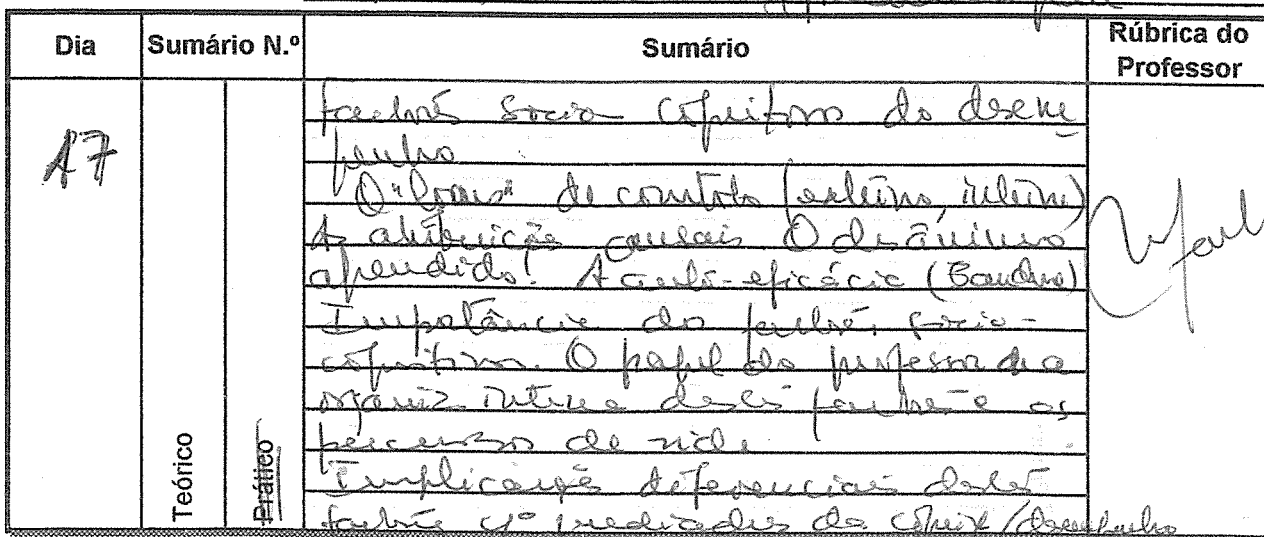 Dia Sumário N.º Sumário Rúbrica do Professor
17
Teórico
Prático
factores socio cognitivos do desem
penho
O "locus" de controlo (externo, interno)
As atribuições causais O desânimo
aprendido. A auto-eficácia (Bandura)
Importância dos factores socio-
cognitivos. O papel do professor na
organiz interna destes factores e os
percursos de vida
Implicações diferenciais destes
factores cº mediadores da /desempenho